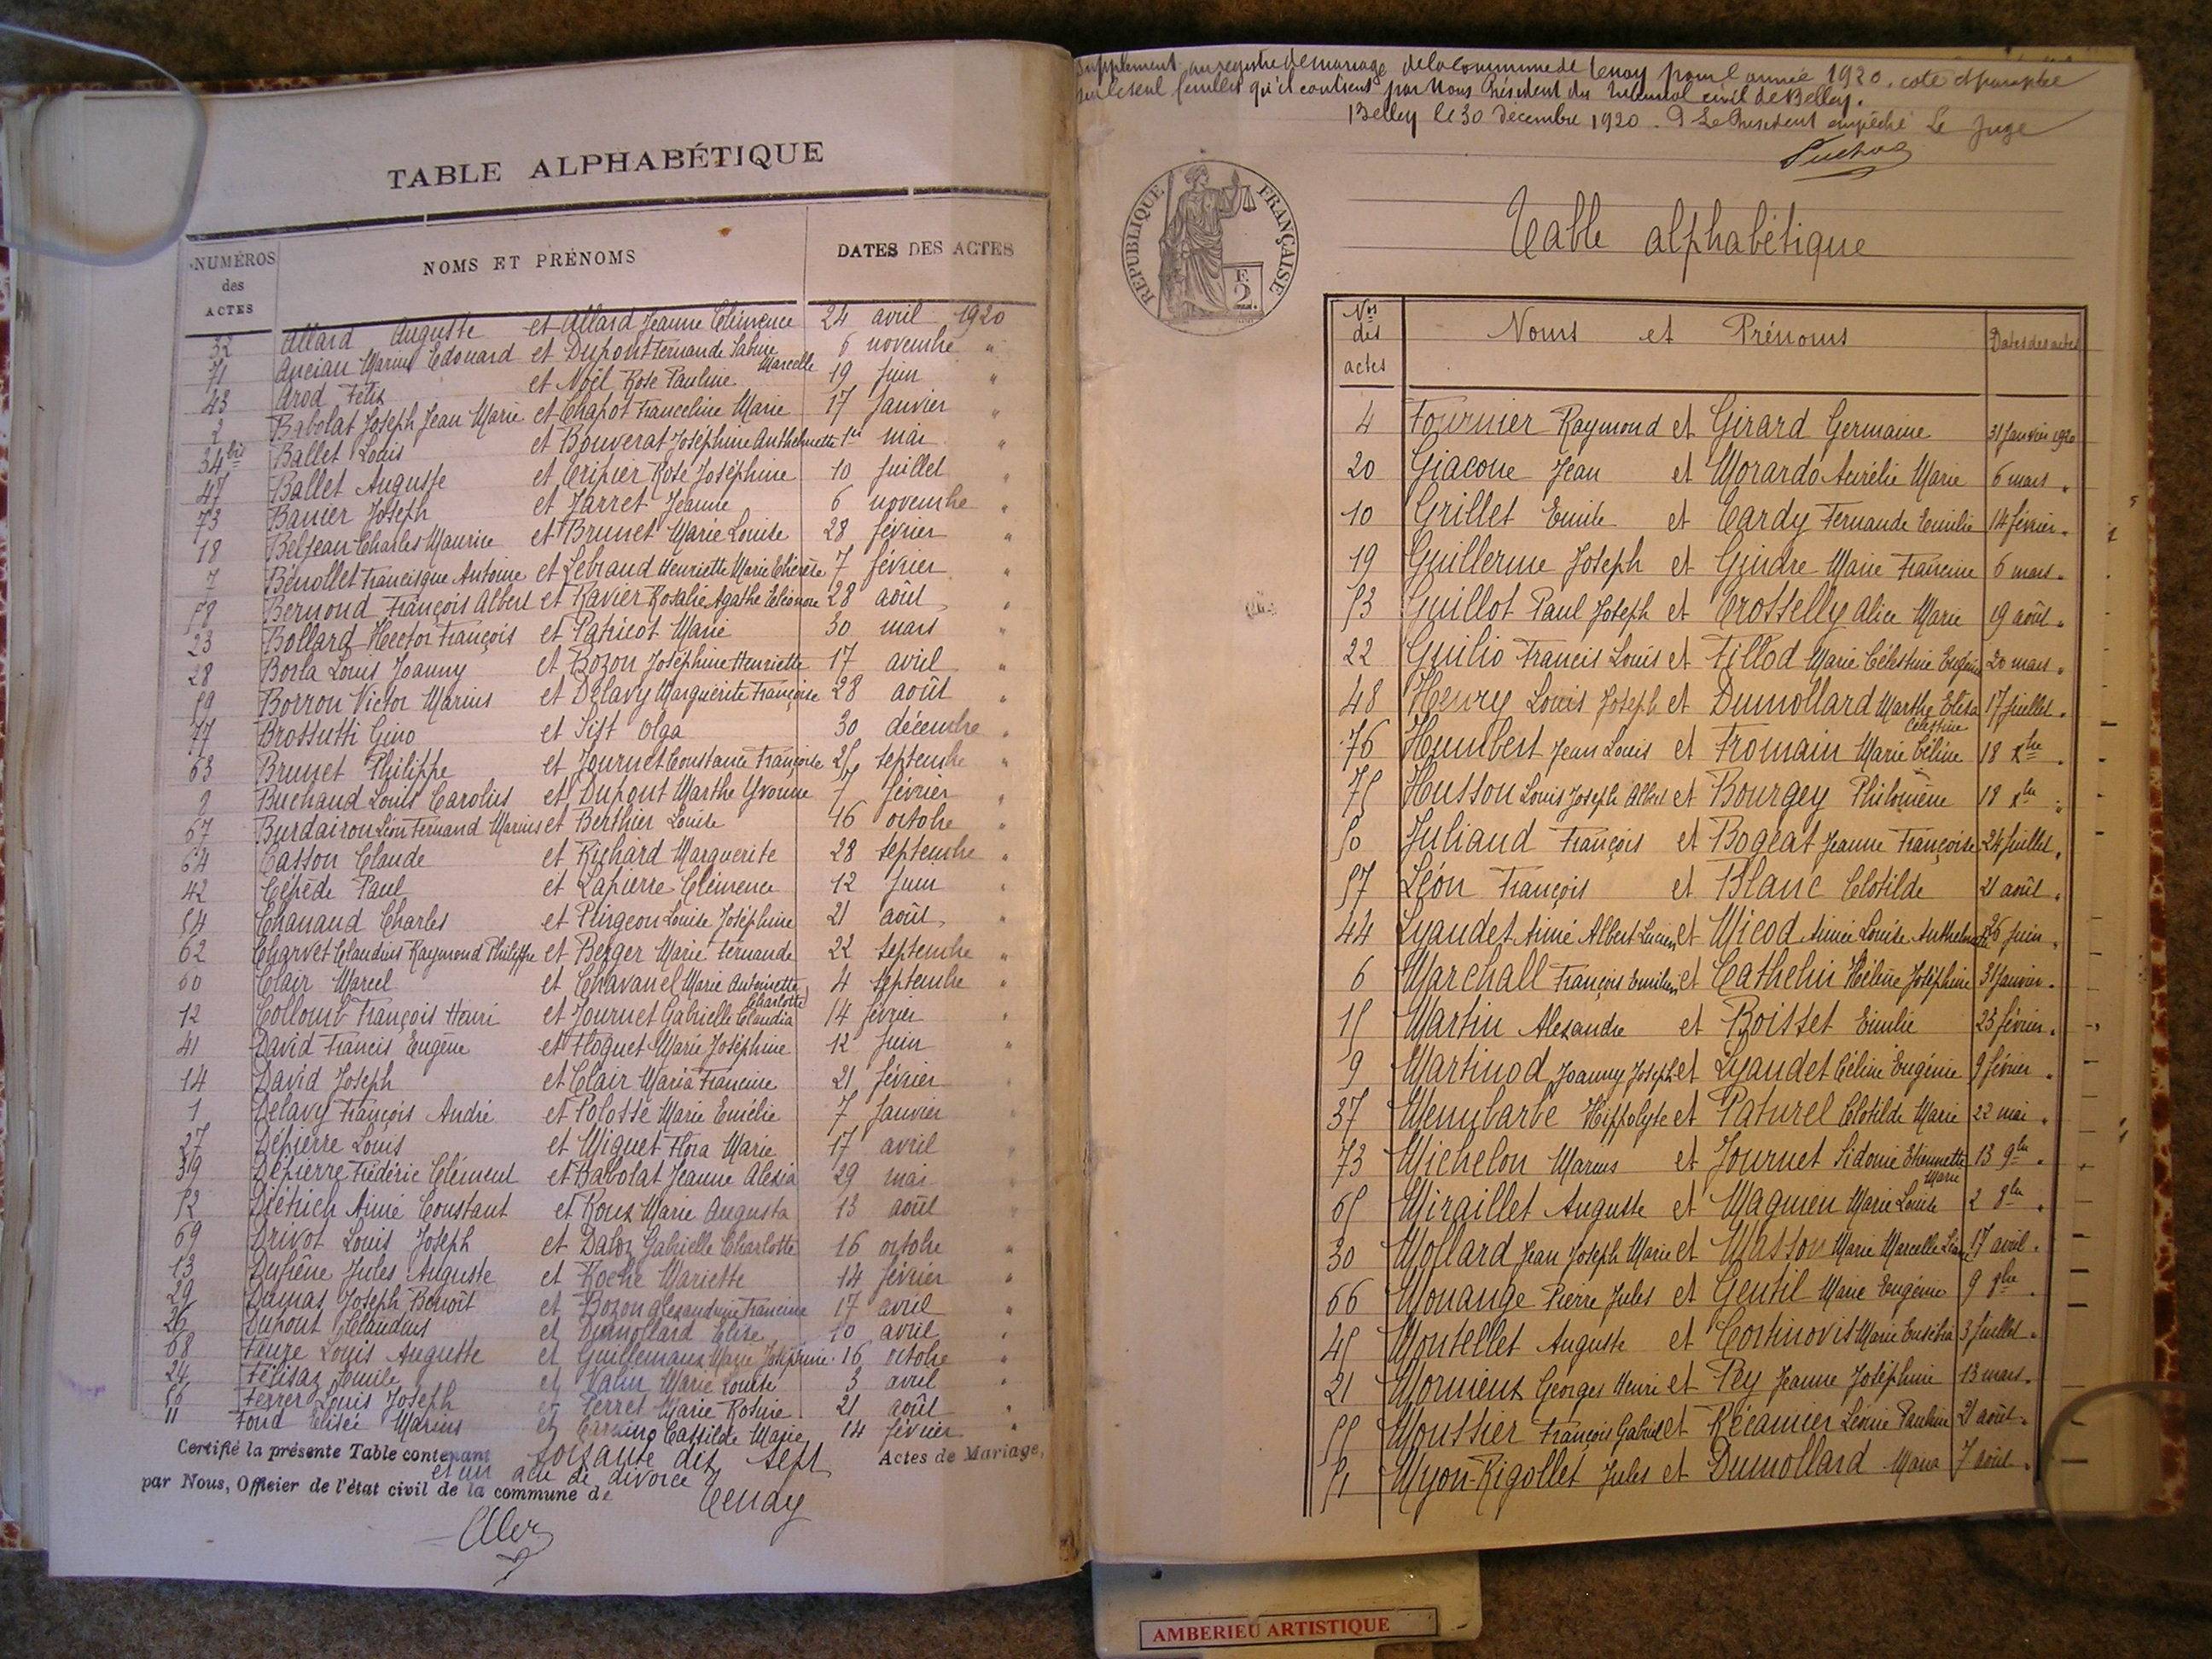 TABLE ALPHABÉTIQUE
NUMÉROS des ACTES NOMS ET PRÉNOMS DATES DES ACTES
32 Allard Auguste et Allard Jeanne Clémence 24 avril 1920
71 Ancian Marius Edouard et Dupont Fernande Sabine Marcelle 6 novembre "
43 Arod Félix et Noël Rose Pauline 19 Juin "
2 Babolat Joseph Jean Marie et Chapot Franceline Marie 17 Janvier "
34 bis Ballet Louis et Bouverat Joséphine Anthelmette 1er mai "
47 Ballet Auguste et Cripier Rose Joséphine 10 Juillet "
73 Banier Joseph et Jarret Jeanne 6 novembre "
18 Beljean Charles Maurice et Brunet Marie Louise 28 février "
7 Benollet Francisque Antoine et Lebraud Henriette Marie Thérèse 7 février "
58 Bernond François Albert et Ravier Rosalie Agathe Eléonore 28 août "
23 Bollard Hector François et Patricot Marie 30 mars "
28 Borla Louis Joanny et Bozon Joséphine Henriette 17 avril "
59 Borron Victor Marius et Delavy Marguerite Françoise 28 août "
77 Brossutti Gino et Sist Olga 30 décembre "
63 Brunet Philippe et Journet Constance Françoise 25 septembre "
8 Buchaud Louis Carolus et Dupont Marthe Yvonne 7 février "
67 Burdairon Léon Fernand Marius et Berthier Louise 16 octobre "
64 Casson Claude et Richard Marguerite 28 septembre "
42 Cépède Paul et Lapierre Clémence 12 Juin "
54 Chanaud Charles et Pingeon Louise Joséphine 21 août "
62 Charvet Claudius Raymond Philippe et Berger Marie Fernande 22 septembre "
60 Clair Marcel et Chavanel Marie Antoinette 4 septembre "
12 Collomb François Henri et Journet Gabrielle Claudia Charlotte 14 février "
41 David Francis Eugène et Floquet Marie Joséphine 12 Juin "
14 David Joseph et Clair Maria Francine 21 février "
1 Delavy François André et Polosse Marie Emélie 7 Janvier "
27 Dépierre Louis et Miguet Flora Marie 17 avril "
39 Dépierre Frédéric Clément et Babolat Jeanne Alexia 29 mai "
52 Diétrich Aimé Constant et Roux Marie Augusta 13 août "
69 Drivot Louis Joseph et Daloz Gabrielle Charlotte 16 octobre "
13 Dufrêne Jules Auguste et Roche Mariette 14 février "
29 Dumas Joseph Benoît et Bozon Alexandrine Francine 17 avril "
26 Dupont Claudius et Dumollard Elise 10 avril "
68 Faure Louis Auguste et Guillemaux Marie Joséphine 16 octobre "
24 Félisaz Emile et Valin Marie Louise 3 avril "
56 Ferrer Louis Joseph et Perret Marie Rosine 21 août "
11 Fond Elisée Marius et Cassilde Marie 14 février "
Certifié la présente Table contenant soixante dix sept Actes de Mariage,
et un acte de divorce
par Nous, Officier de l'état civil de la commune de Tenay
Supplément au registre de mariage de la commune de Tenay pour l'année 1920, coté et paraphé
sur le seul feuillet qu'il contient par Nous Président du Tribunal civil de Belley.
Belley le 30 Décembre 1920. P Le Président empêché Le Juge
RÉPUBLIQUE FRANÇAISE
F 2
Table alphabétique
Nos des actes Noms et Prénoms Dates des actes
4 Fournier Raymond et Girard Germaine 31 Janvier 1920
20 Giacone Jean et Morardo Aurélie Marie 6 mars "
10 Grillet Emile et Cardy Fernande Emilie 14 février "
19 Guillerme Joseph et Gindre Marie Francine 6 mars "
53 Guillot Paul Joseph et Crosselly Alice Marie 19 août "
22 Guilio Francis Louis et Tillod Marie Célestine Eugénie 20 mars "
48 Henry Louis Joseph et Dumollard Marthe Elisa 17 Juillet "
76 Humbert Jean Louis et Fromain Marie Céline Célestine 18 Xbre "
75 Husson Louis Joseph Albert et Bourgey Philomène 18 Xbre "
50 Juliand François et Bogeat Jeanne Françoise 24 Juillet "
57 Léon François et Blanc Clotilde 21 août "
44 Lyaudet Aimé Albert Lucien et Micod Aimée Louise Anthelmette 26 Juin "
6 Marchall François Emilien et Cathelin Hélène Joséphine 31 Janvier "
15 Martin Alexandre et Boisset Emilie 23 février "
9 Martinod Joanny Joseph et Lyaudet Céline Eugénie 9 février "
37 Membarbe Hippolyte et Paturel Clotilde Marie 22 mai "
73 Michelon Marcus et Journet Sidonie Etiennette 13 9bre "
65 Miraillet Auguste et Magnien Marie Louise Marie 2 8bre "
30 Mollard Jean Joseph Marie et Masson Marie Marcelle 17 avril "
66 Monange Pierre Jules et Gentil Marie Eugénie 9 8bre "
45 Montellet Auguste et Cortinovis Marie Eusébia 3 Juillet "
21 Mornieux Georges Henri et Pey Jeanne Joséphine 13 mars "
55 Moussier François Gabriel et Récamier Léonie Pauline 21 août "
51 Myon-Rigollet Jules et Dumollard Maria 7 août "
AMBERIEU ARTISTIQUE